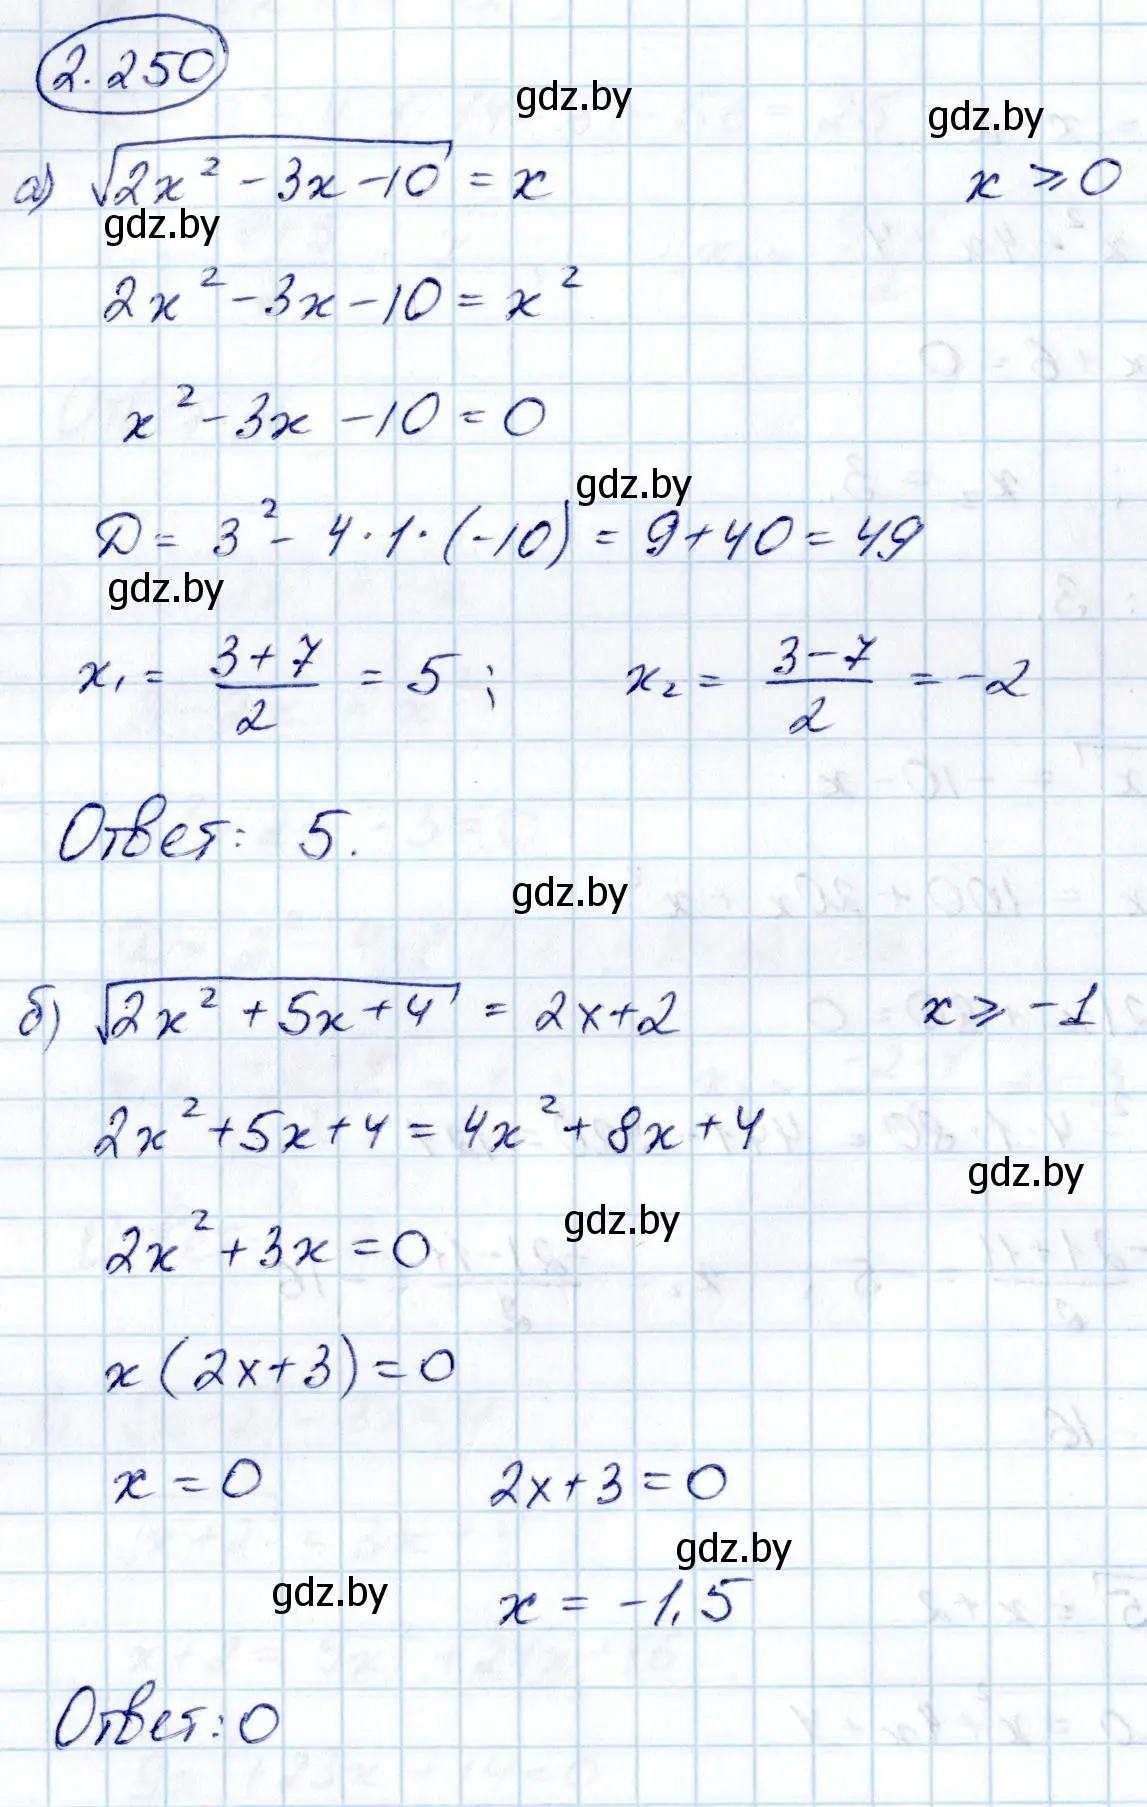 2.250
gdz.by
gdz.by
а) √(2x² - 3x - 10) = x   x ⩾ 0
gdz.by
2x² - 3x - 10 = x²
x² - 3x - 10 = 0
gdz.by
Д = 3² - 4·1·(-10) = 9 + 40 = 49
gdz.by
x₁ = (3+7)/2 = 5;   x₂ = (3-7)/2 = -2
Ответ: 5.
gdz.by
б) √(2x² + 5x + 4) = 2x + 2   x ⩾ -1
2x² + 5x + 4 = 4x² + 8x + 4
gdz.by
gdz.by
2x² + 3x = 0
x (2x + 3) = 0
x = 0   2x + 3 = 0
gdz.by
gdz.by
x = -1,5
Ответ: 0